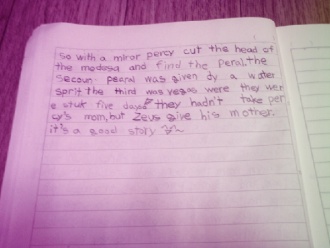 so with a miror percy cut the head of
the medusa and find the peral. the
secoun pearal was given dy a water
sprit the third was vegas were they wer
e stuk five dayes they hadn't take per
cy's mom, but Zeus give his mother.
it's a good story